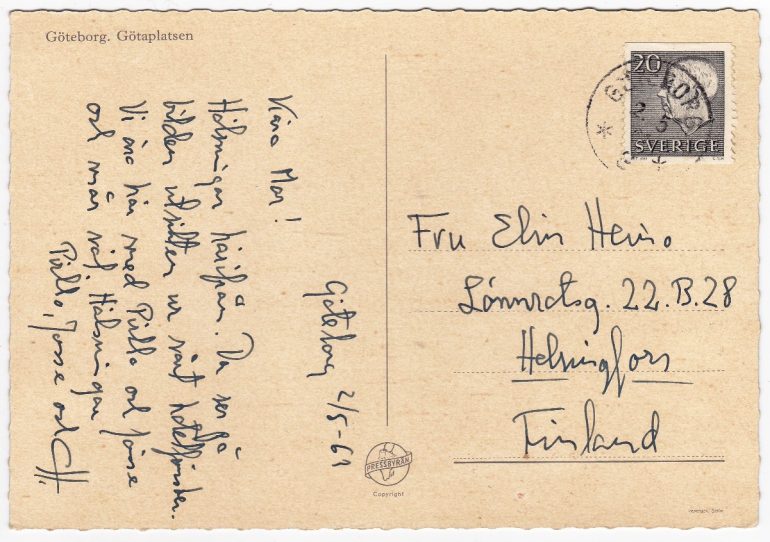 Göteborg. Götaplatsen
Göteborg 2/5-61
Kära Mor!
Hälsningar härifrån. Du ser på
bilden utsikten ur vårt hotellfönster.
Vi äro här med Pullo och Josse
och mår väl. Hälsningar
Pullo, Josse och
20
SVERIGE
Fru Elin Heino
Lönnrotsg. 22.B.28
Helsingfors
Finland
PRESSBYRÅN
Copyright